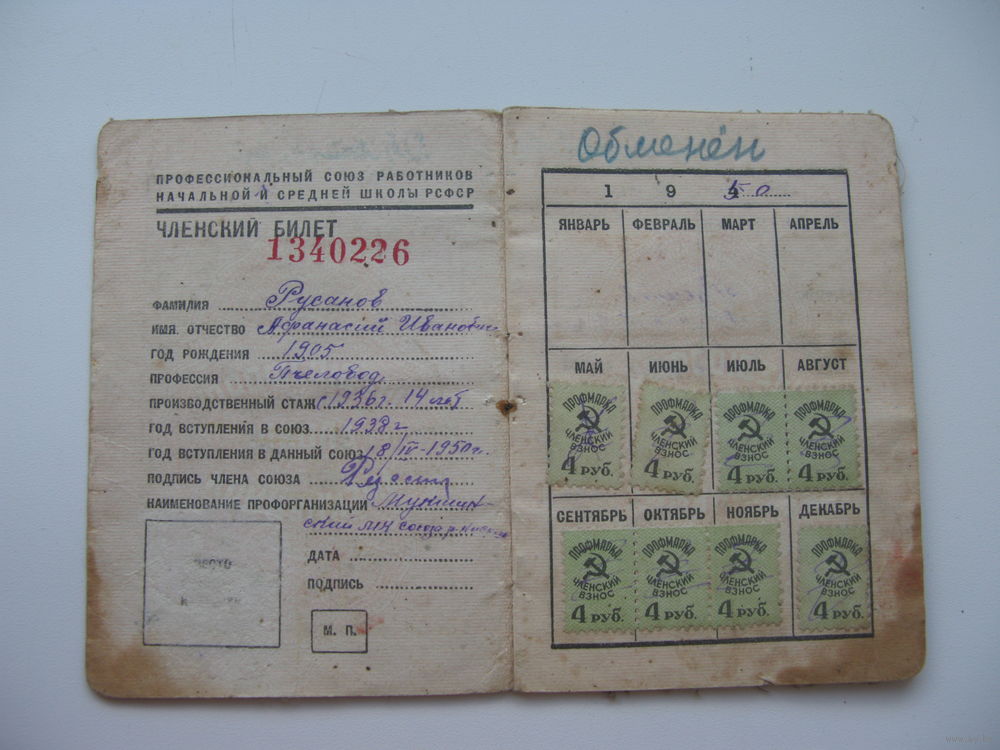 ПРОФЕССИОНАЛЬНЫЙ СОЮЗ РАБОТНИКОВ
НАЧАЛЬНОЙ И СРЕДНЕЙ ШКОЛЫ РСФСР
ЧЛЕНСКИЙ БИЛЕТ
1340226
ФАМИЛИЯ Русанов
ИМЯ, ОТЧЕСТВО Афанасий Иванович
ГОД РОЖДЕНИЯ 1905
ПРОФЕССИЯ Пчеловод
ПРОИЗВОДСТВЕННЫЙ СТАЖ с 1936 г. 14 лет
ГОД ВСТУПЛЕНИЯ В СОЮЗ 1938 г
ГОД ВСТУПЛЕНИЯ В ДАННЫЙ СОЮЗ 8/IV-1950 г.
ПОДПИСЬ ЧЛЕНА СОЮЗА
НАИМЕНОВАНИЕ ПРОФОРГАНИЗАЦИИ
ДАТА
ПОДПИСЬ
МЕСТО
М. П.
Обменён
1 9 50
ЯНВАРЬ ФЕВРАЛЬ МАРТ АПРЕЛЬ
МАЙ ИЮНЬ ИЮЛЬ АВГУСТ
ПРОФМАРКА ПРОФМАРКА ПРОФМАРКА ПРОФМАРКА
ЧЛЕНСКИЙ ЧЛЕНСКИЙ ЧЛЕНСКИЙ ЧЛЕНСКИЙ
ВЗНОС ВЗНОС ВЗНОС ВЗНОС
4 РУБ. 4 РУБ. 4 РУБ. 4 РУБ.
СЕНТЯБРЬ ОКТЯБРЬ НОЯБРЬ ДЕКАБРЬ
ПРОФМАРКА ПРОФМАРКА ПРОФМАРКА ПРОФМАРКА
ЧЛЕНСКИЙ ЧЛЕНСКИЙ ЧЛЕНСКИЙ ЧЛЕНСКИЙ
ВЗНОС ВЗНОС ВЗНОС ВЗНОС
4 РУБ. 4 РУБ. 4 РУБ. 4 РУБ.